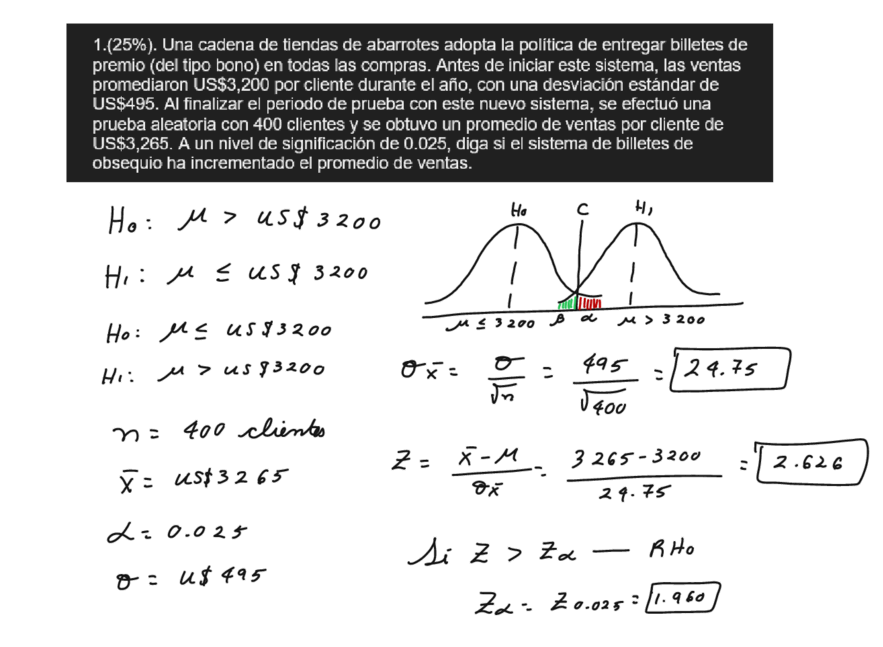 1.(25%). Una cadena de tiendas de abarrotes adopta la política de entregar billetes de
premio (del tipo bono) en todas las compras. Antes de iniciar este sistema, las ventas
promediaron US$3,200 por cliente durante el año, con una desviación estándar de
US$495. Al finalizar el periodo de prueba con este nuevo sistema, se efectuó una
prueba aleatoria con 400 clientes y se obtuvo un promedio de ventas por cliente de
US$3,265. A un nivel de significación de 0.025, diga si el sistema de billetes de
obsequio ha incrementado el promedio de ventas.
H₀: μ > US$ 3200
H₁: μ ≤ US$ 3200
H₀: μ ≤ US$3200
H₁: μ > US$3200
n = 400 clientes
x̄ = US$3265
α = 0.025
σ = U$ 495
H₀ C H₁
μ ≤ 3200 β α μ > 3200
σx̄ = σ/√n = 495/√400 = 24.75
Z = x̄ - μ/σx̄ = 3265-3200/24.75 = 2.626
Si Z > Zα — RH₀
Zα = Z0.025 = 1.960